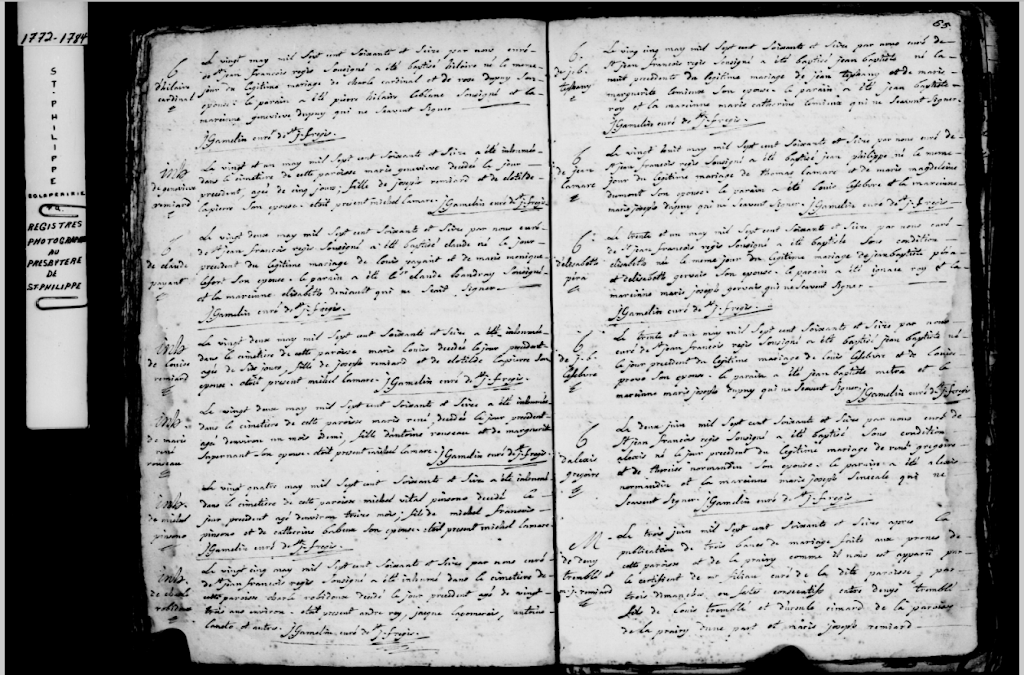 1772-1784
ST-PHILIPPE
REGISTRES
PHOTOGRAPHIÉ
AU
PRESBYTERE
DE
ST-PHILIPPE
B
d'hilaire
cardinal
Le vingt may mil Sept cent Soixante et Seize par nous curé
de St jean françois regis Sousigné a été baptisé hilaire né le meme
jour du legitime mariage de charle cardinal et de rose dupuy Son
epouse. le parain a été pierre hilaire leblanc Sousigné et la
maraine genevieve dupuy qui ne Seavent Signer
J Gamelin curé de St J. f. regis.
inh
de genevieve
remiard
Le vingt et un may mil Sept cent Soixante et Seize a été inhumée
dans le cimetiere de cette paroisse marie genevieve decedée le jour
precedent, agée de cinq jours; fille de joseph remiard et de clotilde
lapierre Son epouse. etoit present michel lamare. J Gamelin curé de St J. f. regis
B
de claude
payant
Le vingt deux may mil Sept cent Soixante et Seize par nous curé
de St jean françois regis Sousigné a été baptisé claude né le jour
precedent du legitime mariage de louis payant et de marie monique
lefort Son epouse. le parain a été claude boudray Sousigné
et la maraine elisabeth deniault qui ne Scait Signer
J Gamelin curé de St J. f. regis
inh
de louise
remiard
Le vingt deux may mil Sept cent Soixante et Seize a été inhumée
dans le cimetiere de cette paroisse marie louise decedée le jour precedent
agée de Six jours, fille de joseph remiard et de clotilde lapierre Son
epouse. etoit present michel lamare. J Gamelin curé de St J. f. regis
inh
de marie
rené
rousseau
Le vingt deux may mil Sept cent Soixante et Seize a été inhumée
dans le cimetiere de cette paroisse marie rené, decedée le jour precedent
agée denviron un mois demi, fille d'antoine rousseau et de marguerite
Supernant Son epouse. etoit present michel lamare. J Gamelin curé de St J. f. regis
inh
de michel
pinsono
Le vingt quatre may mil Sept cent Soixante et Seize a été inhumé
dans le cimetiere de cette paroisse michel vital pinsono decedé le
jour precedent agé denviron treize mois; fils de michel françois
pinsono et de catherine babeu Son epouse. etoit present michel lamare
J Gamelin curé de St J. f. regis
inh
de charle
robidoux
Le vingt cinq may mil Sept cent Soixante et Seize par nous curé
de St jean françois regis Sousigné a été inhumé dans le cimetiere de
cette paroisse charle robidoux decedé le jour precedent agé de vingt
trois ans environ. etoit present andre roy, jacque, antoine
et autres. J Gamelin curé de St J. f. regis
65.
B
de j. b.
Le vingt cinq may mil Sept cent Soixante et Seize par nous curé de
St jean françois regis Sousigné a été baptisé jean baptiste né la
nuit precedente du legitime mariage de jean et de marie
marguerite lomieux Son epouse. le parain a été jean baptiste
roy et la maraine marie catherine lomieux qui ne Seavent Signer
J Gamelin curé de St J. f. regis
B
de jean
lamare
Le vingt huit may mil Sept cent Soixante et Seize par nous curé de
St jean françois regis Sousigné a été baptisé jean philippe né le meme
jour du legitime mariage de thomas lamare et de marie magdeleine
dumont Son epouse. le parain a été louis lefebvre et la maraine
marie joseph dupuy qui ne Seavent Signer. J Gamelin curé de St J. f. regis
B
d'elisabeth
pera
Le trente et un may mil Sept cent Soixante et Seize par nous curé
de St jean françois regis Sousigné a été baptisée Sous condition
elisabeth née le meme jour du legitime mariage de jean baptiste pera
et d'elisabeth gervais Son epouse. le parain a été ignace roy et la
maraine marie joseph gervais qui ne Seavent Signer.
J Gamelin curé de St J. f. regis
B
de j. b.
lefebvre
Le trente et un may mil Sept cent Soixante et Seize par nous
curé de St jean françois regis Sousigné a été baptisé jean baptiste né
le jour precedent du legitime mariage de louis lefebvre et de louise
provo Son epouse. le parain a été jean baptiste et la
maraine marie joseph dupuy qui ne Seavent Signer. J Gamelin curé de St J. f. regis
B
d'alexis
gregoire
Le deux juin mil Sept cent Soixante et Seize par nous curé de
St jean françois regis Sousigné a été baptisé Sous condition
alexis né le jour precedent du legitime mariage de rené gregoire
et de therese normandin Son epouse. le parain a été alexis
normandin et la maraine marie joseph Senecale qui ne
Seavent Signer. J Gamelin curé de St J. f. regis
M
de deny
tremblé et
m. j. remiard
Le trois juin mil Sept cent Soixante et Seize apres la
publication de trois bancs de mariage faite aux prones de
cette paroisse et de la prairy comme il nous est apparu par
le certificat de mr filiau curé de la dite paroisse, par
trois dimanches ou fêtes consecutifs entre denys tremblé
fils de louis tremblé et d'ursule cimard de la paroisse
de la prairy d'une part et marie joseph remiard